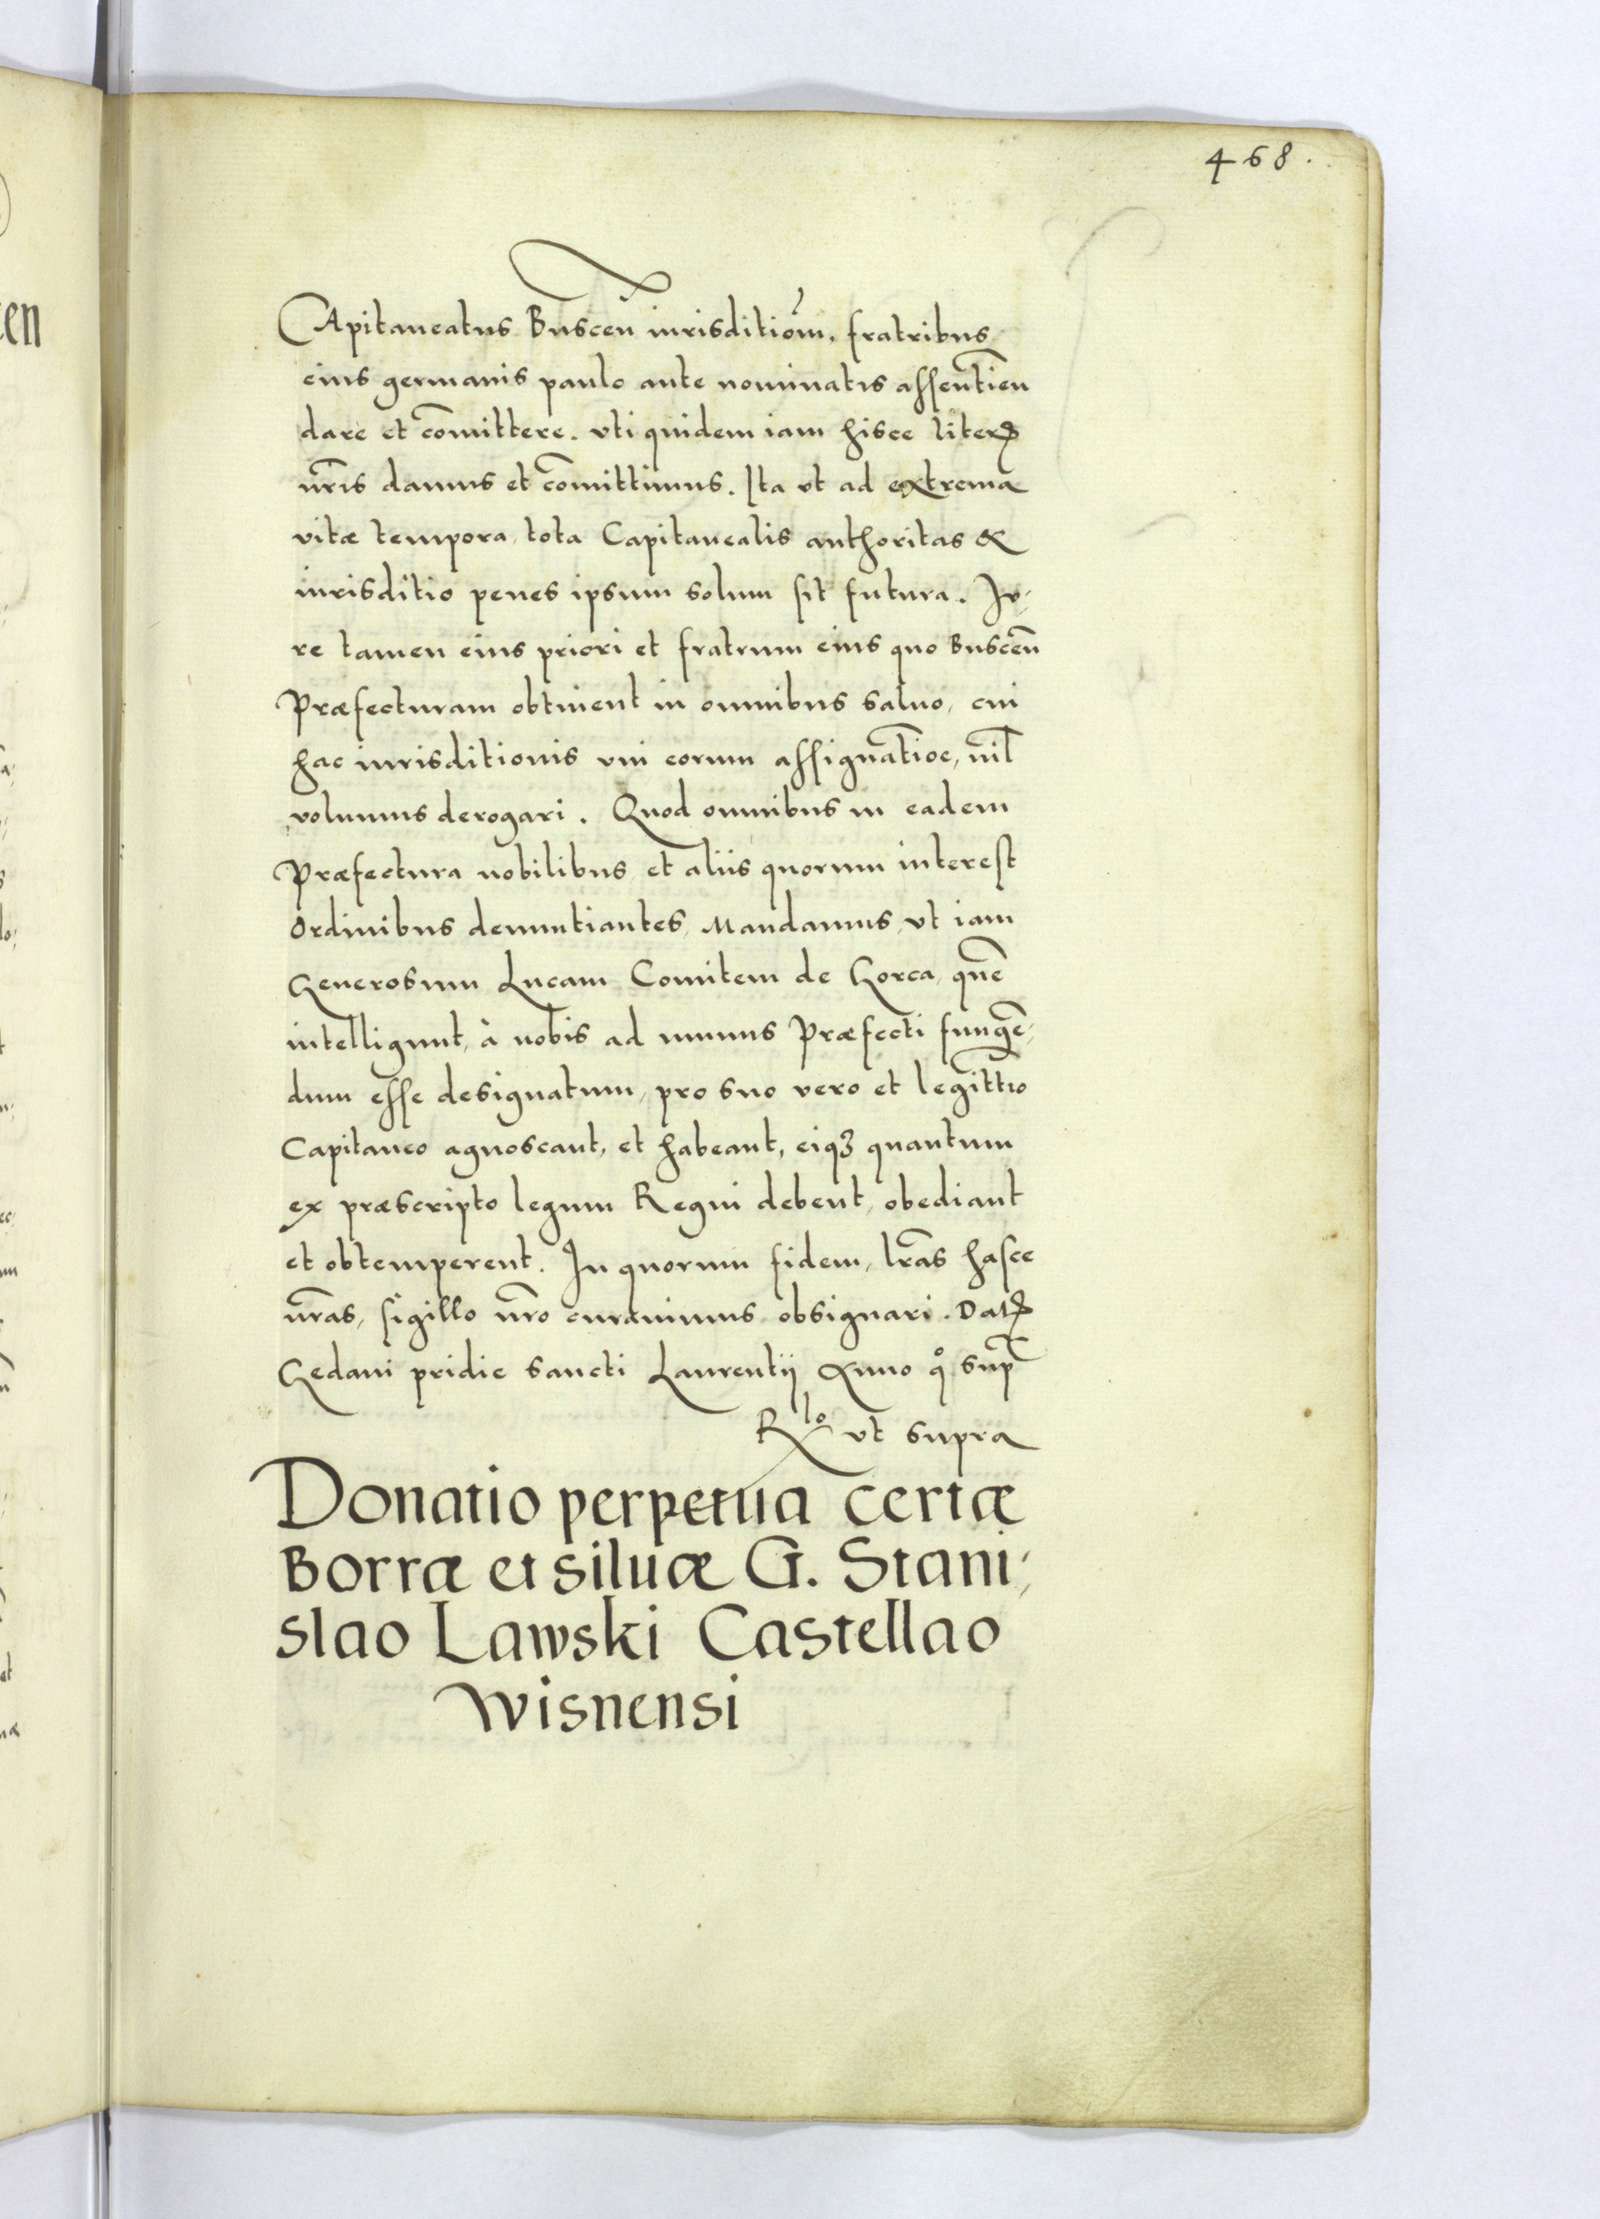 468.
CApitaneatus Buscen̄ iurisditiōm, fratribus
eius germanis paulo ante nominatis assentien̄
dare et com̄ittere. vti quidem iam hisce literꝭ
nr̄is damus et com̄ittimus. Ita vt ad extrema
vitæ tempora, tota Capitanealis authoritas &
iurisditio penes ipsum solum sit futura. Iv-
re tamen eius priori et fratrum eius quo Buscen̄
Præfecturam obtinent in omnibus saluo, cui
hac iurisditionis vni eorum assignatioē, nil̄
volumus derogari. Quod omnibus in eadem
Præfectura nobilibus et aliis quorum interest
Ordinibus denuntiantes, Mandamus, vt iam
Generosum Lucam Comitem de Gorca, quē
intelligunt, à nobis ad munus Præfecti fungē-
dum esse designatum, pro suo vero et legittīo
Capitaneo agnoscant, et habeant, eiqꝫ quantum
ex præscripto legum Regni debent, obediant
et obtemperent. In quorum fidem, lr̄as hasce
nr̄as, sigillo nr̄o curauimus obsignari. Datꝭ
Gedani pridie sancti Laurentij Anno qͦ sup̄
Rlo vt supra
Donatio perpetua certæ
Borræ et siluæ G. Stani-
slao Lawski Castellao
Wisnensi